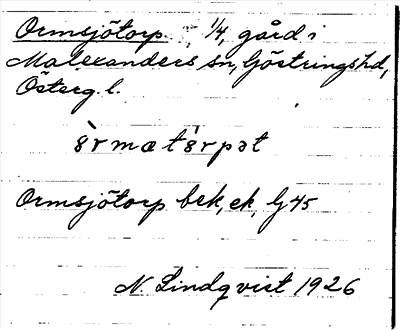 Ormsjötorp 1/4, gård i
Malexanders sn, Göstrings hd,
Österg. l.
Ormsjötorp bek, ek, Gj 45
N. Lindqvist 1926